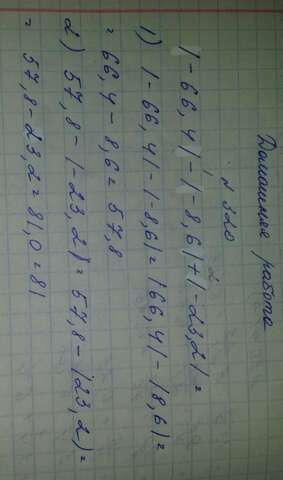 Домашняя работа
№ 320
|-66,4|-|-8,6|+|-23,2|=
1) |-66,4|-|-8,6|=|66,4|-|8,6|=
= 66,4-8,6=57,8
2) 57,8-|-23,2|=57,8-|23,2|=
= 57,8-23,2=81,0=81